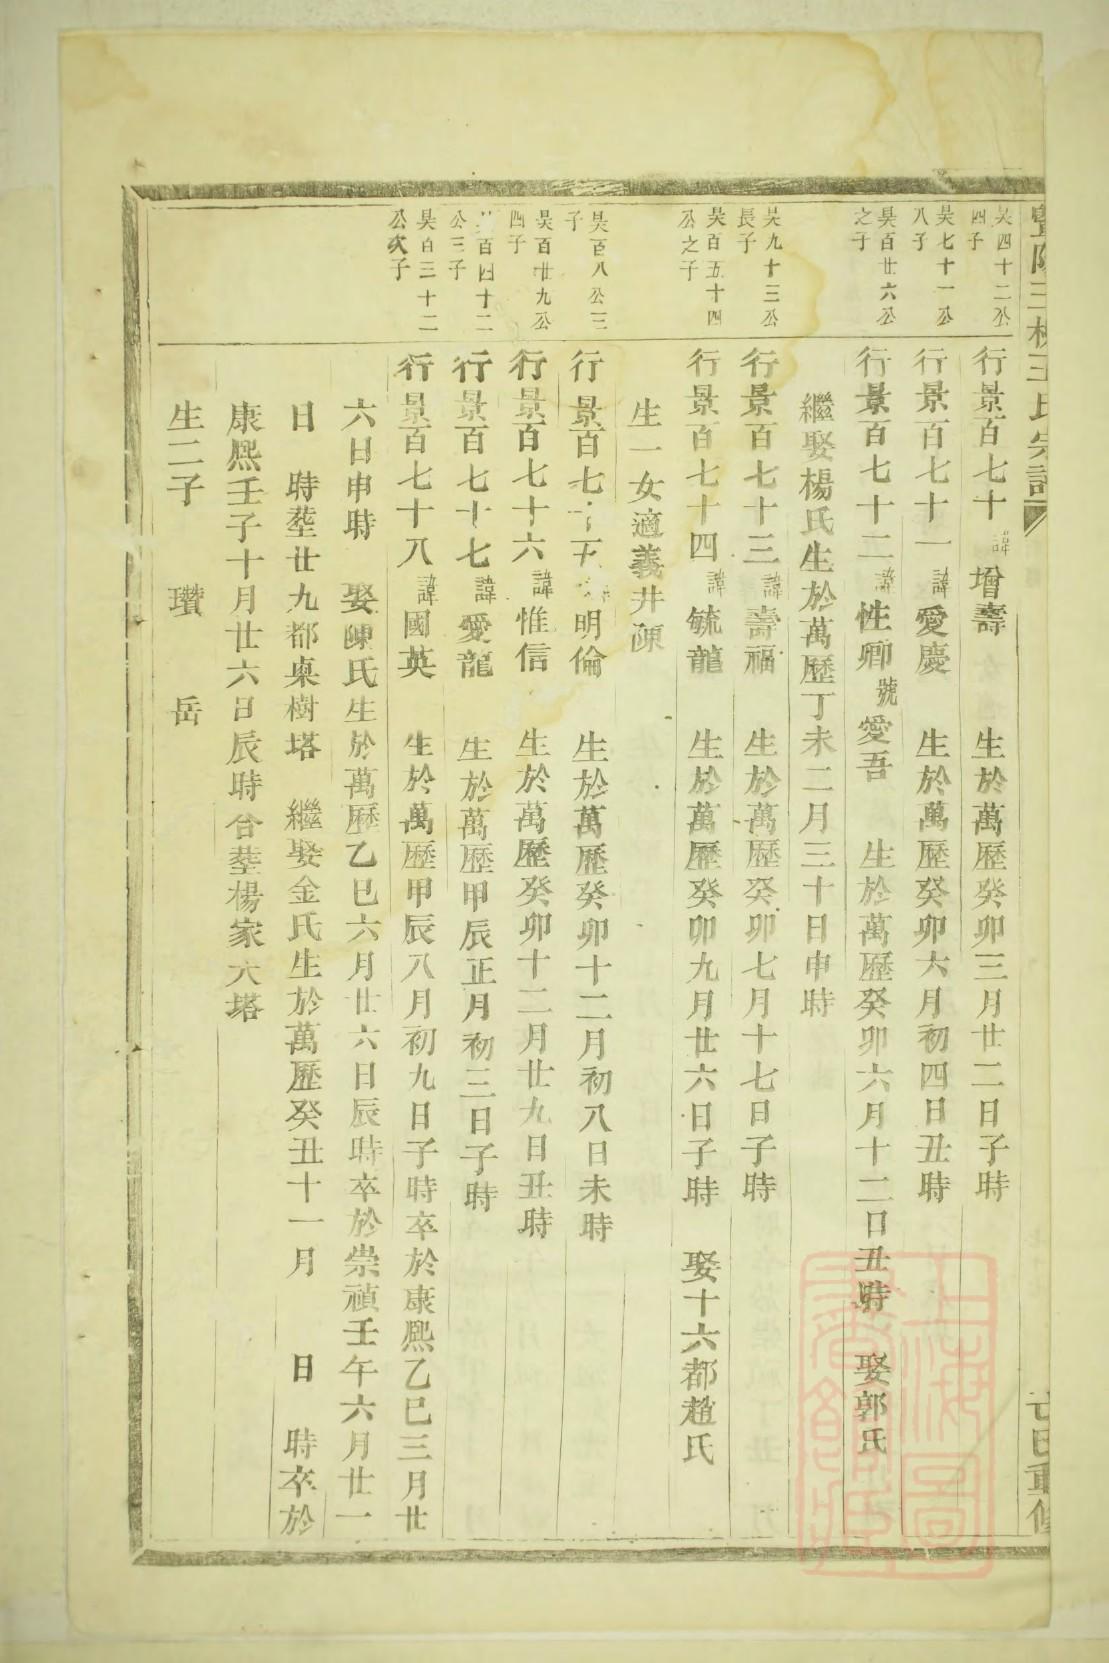 昊四十二公
四子
行景百七十 諱增壽 生於萬歷癸卯三月廿二日子時
昊七十一公
八子
行景百七十一 諱愛慶 生於萬歷癸卯六月初四日丑時
昊百廿六公
之子
行景百七十二 諱性卿 號愛吾 生於萬歷癸卯六月十二日丑時 娶郭氏
繼娶楊氏生於萬歷丁未二月三十日申時
昊九十三公
長子
行景百七十三 諱壽福 生於萬歷癸卯七月十七日子時
昊百五十四
公之子
行景百七十四 諱毓龍 生於萬歷癸卯九月廿六日子時 娶十六都趙氏
生一女適義井陳
昊百八公三
子
行景百七十五 諱明倫 生於萬歷癸卯十二月初八日未時
昊百廿九公
四子
行景百七十六 諱惟信 生於萬歷癸卯十二月廿九日丑時
昊百四十二
公三子
行景百七十七 諱愛龍 生於萬歷甲辰正月初三日子時
昊百三十二
公次子
行景百七十八 諱國英 生於萬歷甲辰八月初九日子時卒於康熙乙巳三月廿
六日申時 娶陳氏生於萬歷乙巳六月廿六日辰時卒於崇禎壬午六月廿一
日 時塟廿九都桌樹塔 繼娶金氏生於萬歷癸丑十一月 日 時卒於
康熙壬子十月廿六日辰時合塟楊家大塔
生二子 瓚 岳
上海圖
書館藏